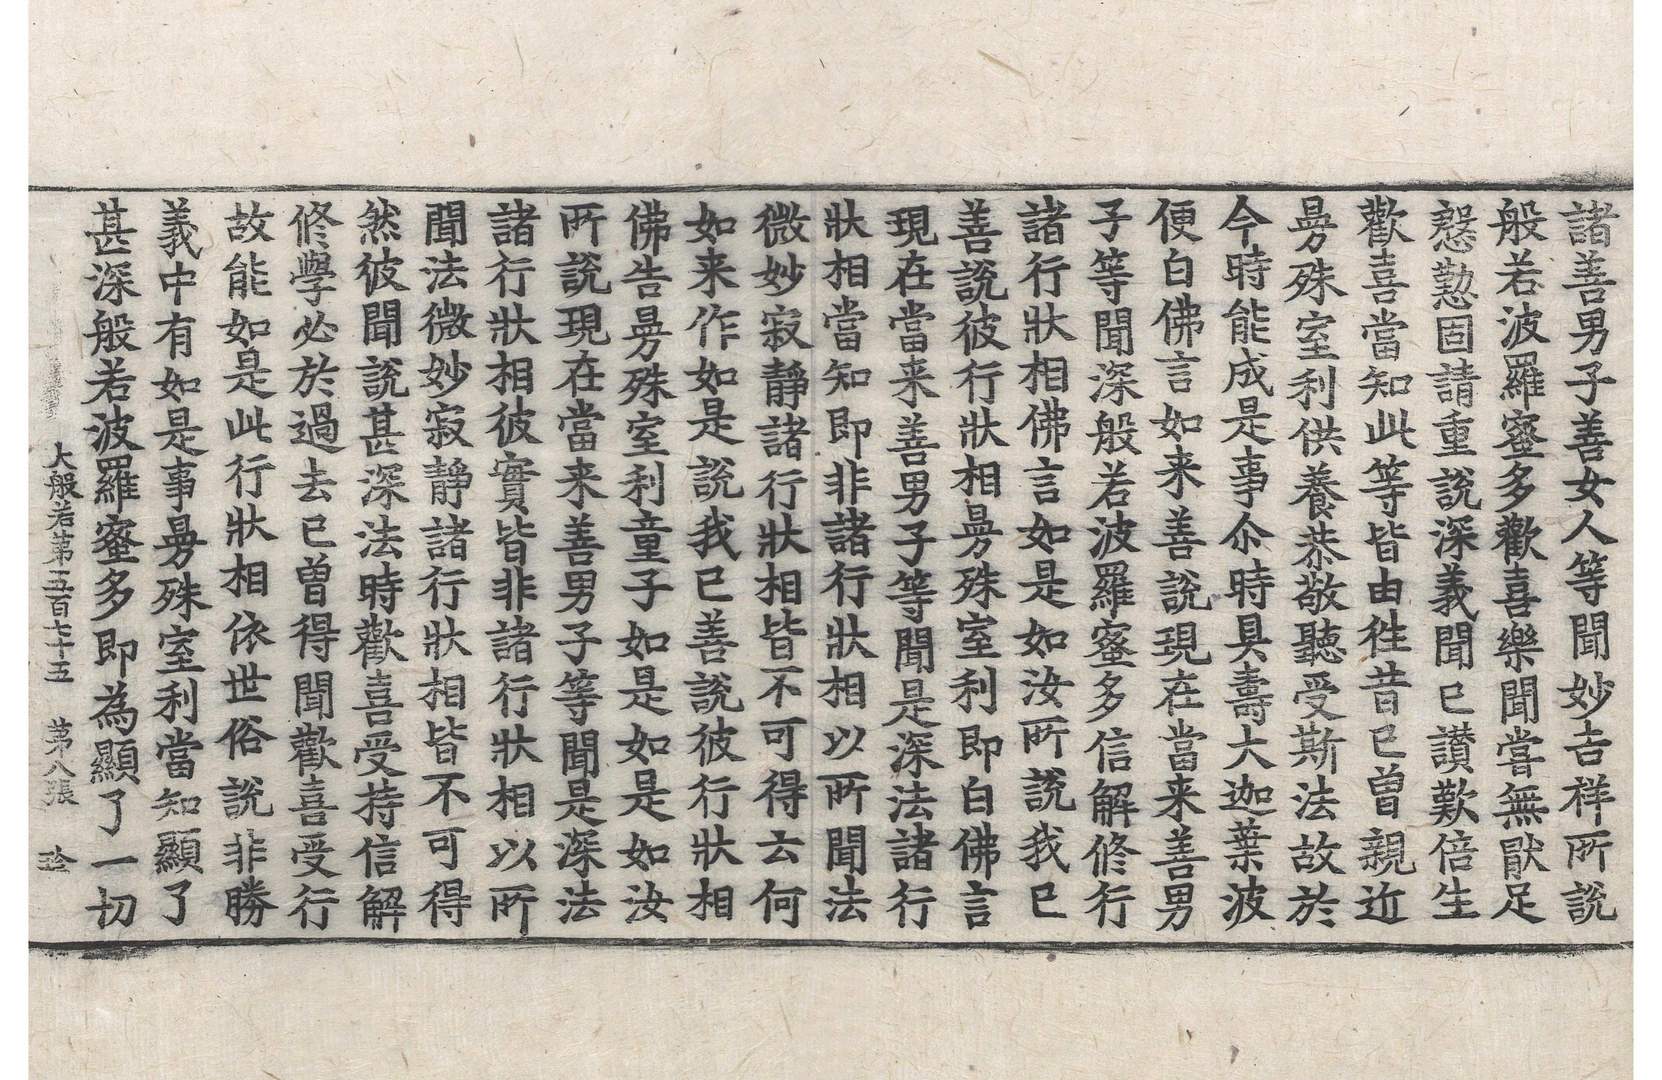 諸善男子善女人等聞妙吉祥所說
般若波羅蜜多歡喜樂聞嘗無猒足
慇懃固請重說深義聞已讃歎倍生
歡喜當知此等皆由徃昔已曾親近
曼殊室利供養恭敬聽受斯法故於
今時能成是事尒時具壽大迦葉波
便白佛言如来善說現在當来善男
子等聞深般若波羅蜜多信解修行
諸行狀相佛言如是如汝所說我已
善說彼行狀相曼殊室利即白佛言
現在當来善男子等聞是深法諸行
狀相當知即非諸行狀相以所聞法
微妙寂靜諸行狀相皆不可得云何
如来作如是說我已善說彼行狀相
佛告曼殊室利童子如是如是如汝
所說現在當来善男子等聞是深法
諸行狀相彼實皆非諸行狀相以所
聞法微妙寂靜諸行狀相皆不可得
然彼聞說甚深法時歡喜受持信解
修學必於過去已曾得聞歡喜受行
故能如是此行狀相依世俗說非勝
義中有如是事曼殊室利當知顯了
甚深般若波羅蜜多即為顯了一切
大般若第五百七十五 第八張 珎